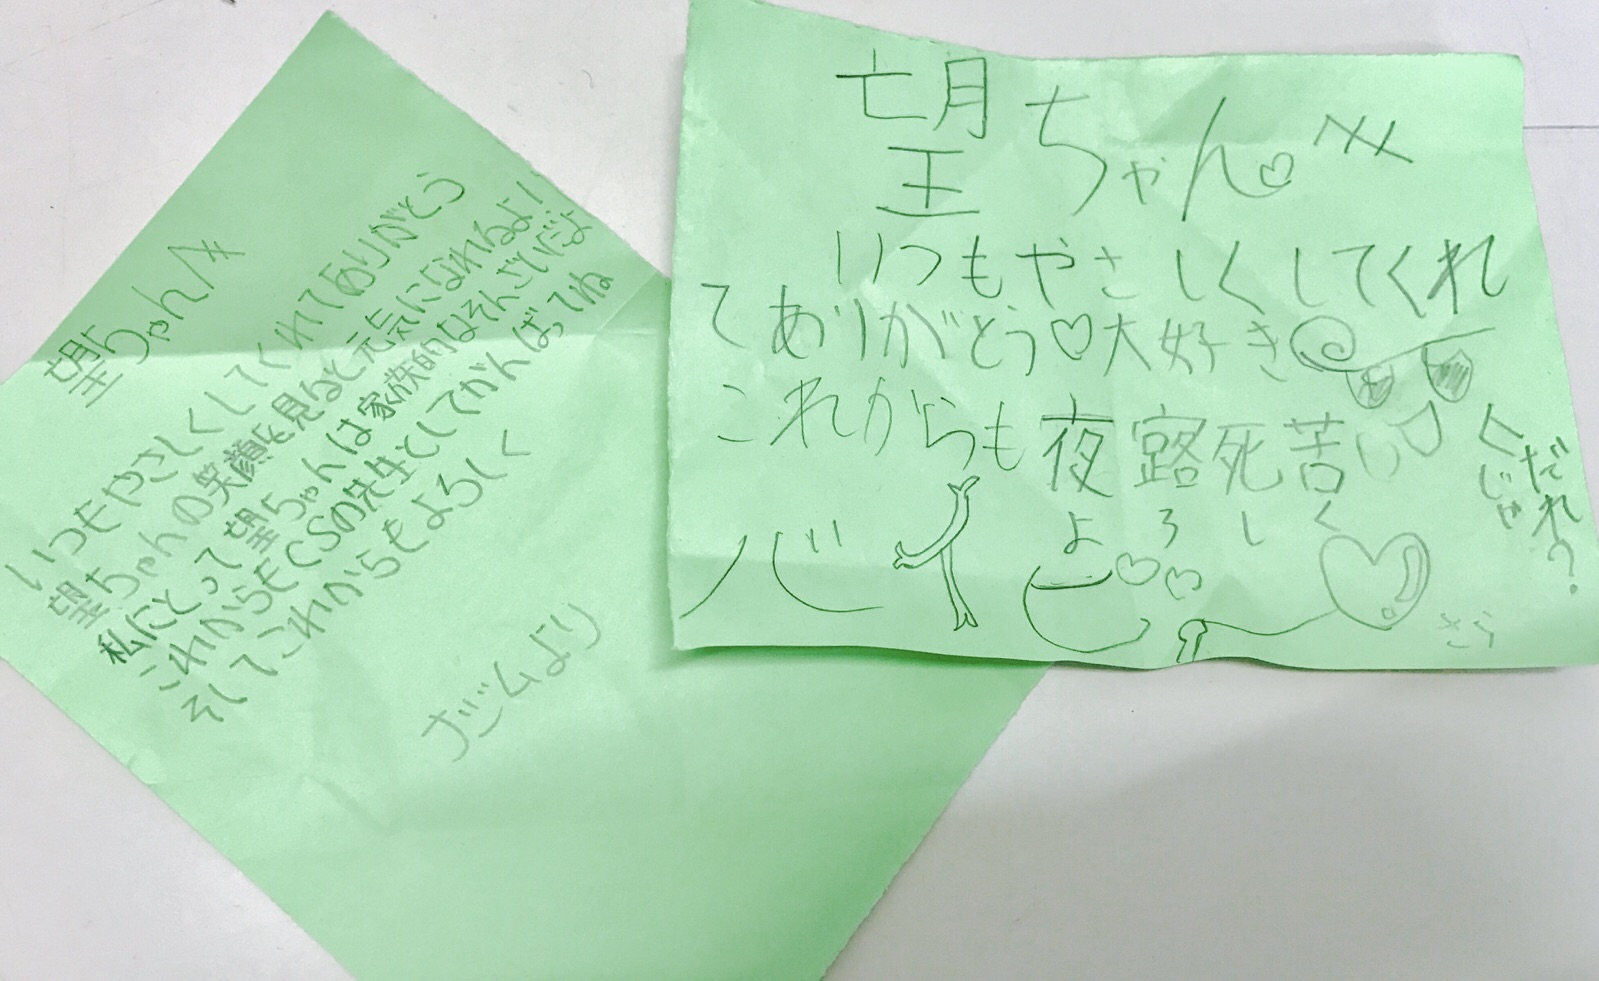 望ちゃんへ
いつもやさしくしてくれてありがとう
望ちゃんの笑顔を見ると元気になれるよ!
私にとって望ちゃんは家族的なそんざいだよ
これからもCSの先生としてがんばってね
そしてこれからもよろしく
より
望ちゃん♡
いつもやさしくしてくれ
てありがとう♡大好き
これからも夜露死苦
よろしく
バイ
だれ?
さら